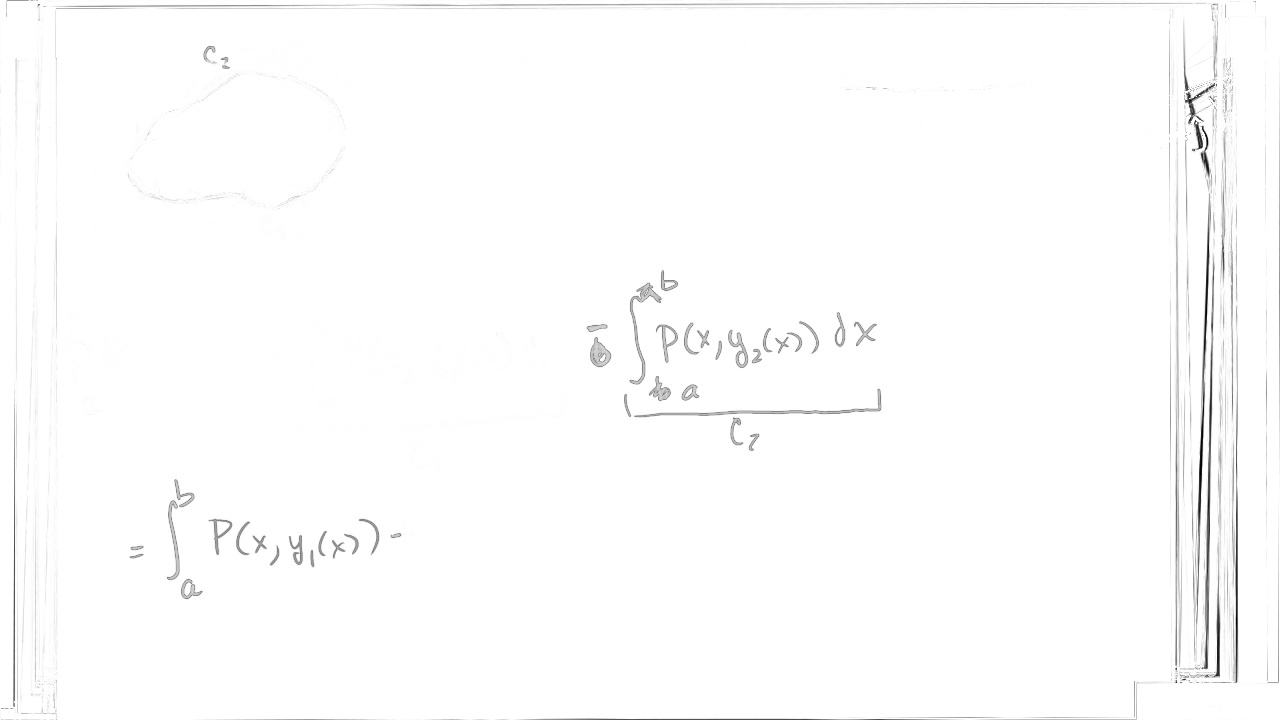 C₂
- ∫ₐᵇ P(x, y₂(x)) dx
C₂
= ∫ₐᵇ P(x, y₁(x)) -